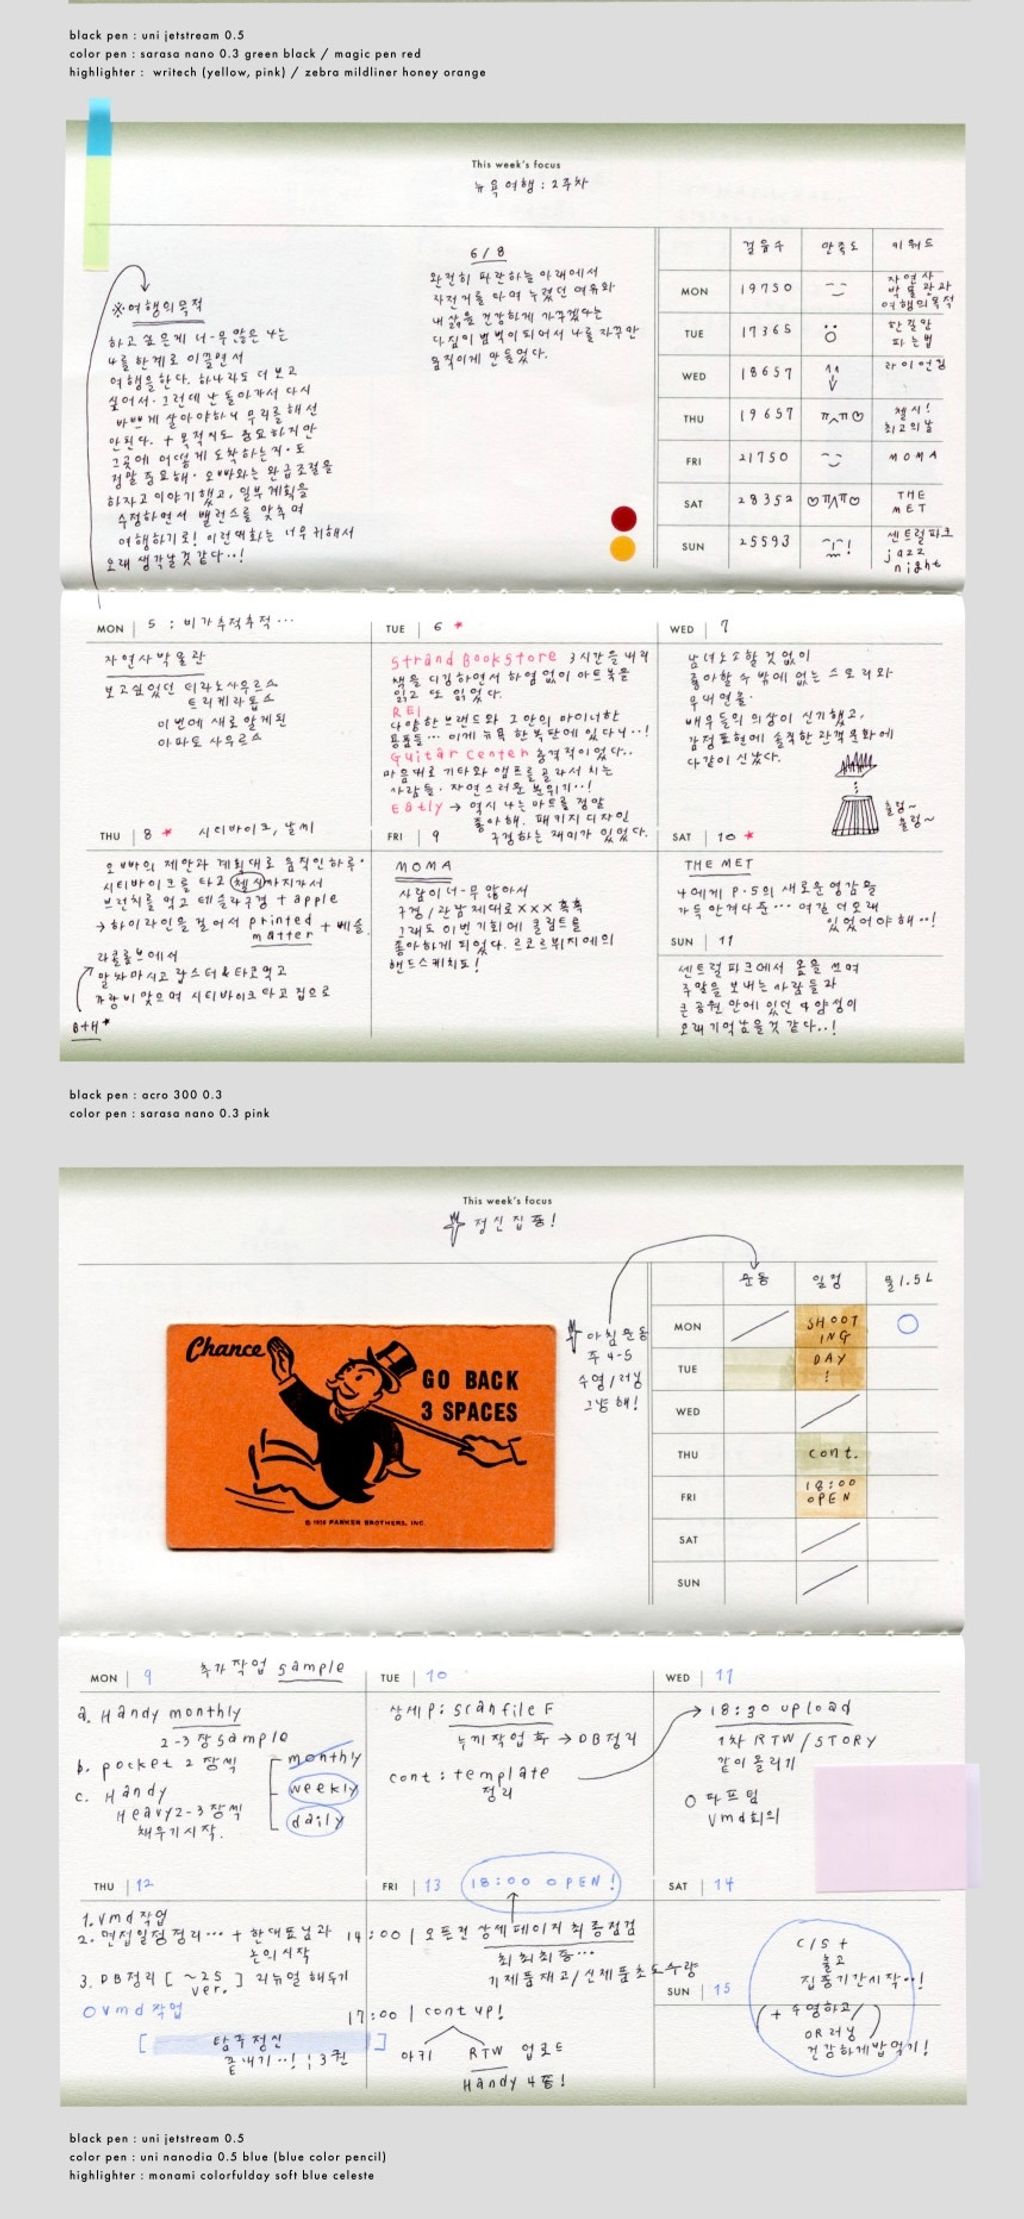 black pen : uni jetstream 0.5
color pen : sarasa nano 0.3 green black / magic pen red
highlighter : writech (yellow, pink) / zebra mildliner honey orange
This week's focus
뉴욕여행 : 2주차
걸음수 만족도 키워드
MON 19750 자연사 박물관과 여행의목적
TUE 17365 한길만 파는법
WED 18657 라이언킹
THU 19657 첼시! 최고의날
FRI 21750 MOMA
SAT 28352 THE MET
SUN 25593 센트럴파크 jazz night
※여행의목적
하고 싶은게 너-무 많은 나는
나를 한계로 이끌면서
여행을한다. 하나라도 더 보고
싶어서. 그런데 난 돌아가서 다시
바쁘게 살아야하니 무리를해선
안된다. + 목적지도 중요하지만
그곳에 어떻게 도착하는지.도
정말 중요해. 오빠와는 완급조절을
하자고이야기했고, 일부계획을
수정하면서 밸런스를 맞추며
여행하기로! 이런대화는 너무 귀해서
오래 생각날것 같다..!
6/8
완전히 파란하늘 아래에서
자전거를 타며 누렸던 여유와
내 삶을 건강하게 가꾸겠다는
다짐이 범벅이 되어서 나를 자꾸만
움직이게 만들었다.
MON 5 : 비가추적추적...
자연사박물관
보고싶었던 티라노사우르스
트리케라톱스
이번에 새로 알게된
아파토 사우르스
TUE 6 *
Strand Bookstore 3시간을 내리
책을 디깅하면서 하염없이 아트북을
읽고 또 읽었다.
REI
다양한 브랜드와 그 안의 마이너한
용품들... 이게 뉴욕 한복판에 있다니..!
Guitar Center 충격적이었다..
마음대로 기타와 앰프를 골라서 치는
사람들. 자연스러운 분위기..!
Eatly → 역시 나는 마트를 정말
좋아해. 패키지 디자인
구경하는 재미가 있었다.
WED 7
남녀노소할 것 없이
좋아할 수 밖에 없는 스토리와
무대연출.
배우들의 의상이 신기했고,
감정표현에 솔직한 관객문화에
다같이 신났다.
THU 8 * 시티바이크, 날씨
오빠의 제안과 계획대로 움직인하루.
시티바이크를 타고 첼시까지가서
브런치를 먹고 테슬라구경 + apple
→ 하이라인을 걸어서 printed matter + 베슬
라콜롬브에서
말차마시고 랍스터&타코먹고
가랑비맞으며 시티바이크타고 집으로
B+H *
FRI 9
MOMA
사람이 너-무 많아서
구경/관람 제대로 XXX 흑흑
그래도 이번 기회에 클림트를
좋아하게 되었다. 르코르뷔지에의
핸드스케치도!
SAT 10 *
THE MET
나에게 P.5의 새로운영감을
가득 안겨다준... 여길 더오래
있었어야해..!
SUN 11
센트럴파크에서 옷을 벗으며
주말을 보내는 사람들과
큰공원 안에있던 다양성이
오래기억남을것 같다..!
black pen : acro 300 0.3
color pen : sarasa nano 0.3 pink
This week's focus
정신집중!
운동 일정 물1.5L
MON SHOOTING
TUE DAY !
WED
THU cont.
FRI 18:00 OPEN
SAT
SUN
아침운동
주 4-5
수영/러닝
그냥해!
Chance
GO BACK
3 SPACES
© 1936 PARKER BROTHERS, INC.
MON 9 추가작업 sample
a. Handy monthly
2-3장 sample
b. pocket 2장씩
c. Handy
Heavy 2-3장씩
채우기시작.
monthly
weekly
daily
TUE 10
상세P: scanfile F
누끼작업 후 → DB정리
cont : template
정리
WED 11
18:30 upload
1차 RTW/STORY
같이 올리기
O 파프팀
vmd회의
THU 12
1. vmd 작업
2. 면접일정정리... + 한대표님과
논의시작
3. DB정리 [ ~25 ver. ] 리뉴얼 해두기
O vmd 작업
[ 탐구정신 ]
끝내기..! ; 3권
FRI 13 18:00 OPEN!
14:00 | 오픈전 상세페이지 최종점검
최최최종...
기제품재고/신제품초도수량
17:00 | cont up!
아키 RTW 업로드
Handy 4종!
SAT 14
C/S +
출고
집중기간시작..!
SUN 15
( + 수영하고/
OR 러닝 )
건강하게밥먹기!
black pen : uni jetstream 0.5
color pen : uni nanodia 0.5 blue (blue color pencil)
highlighter : monami colorfulday soft blue celeste